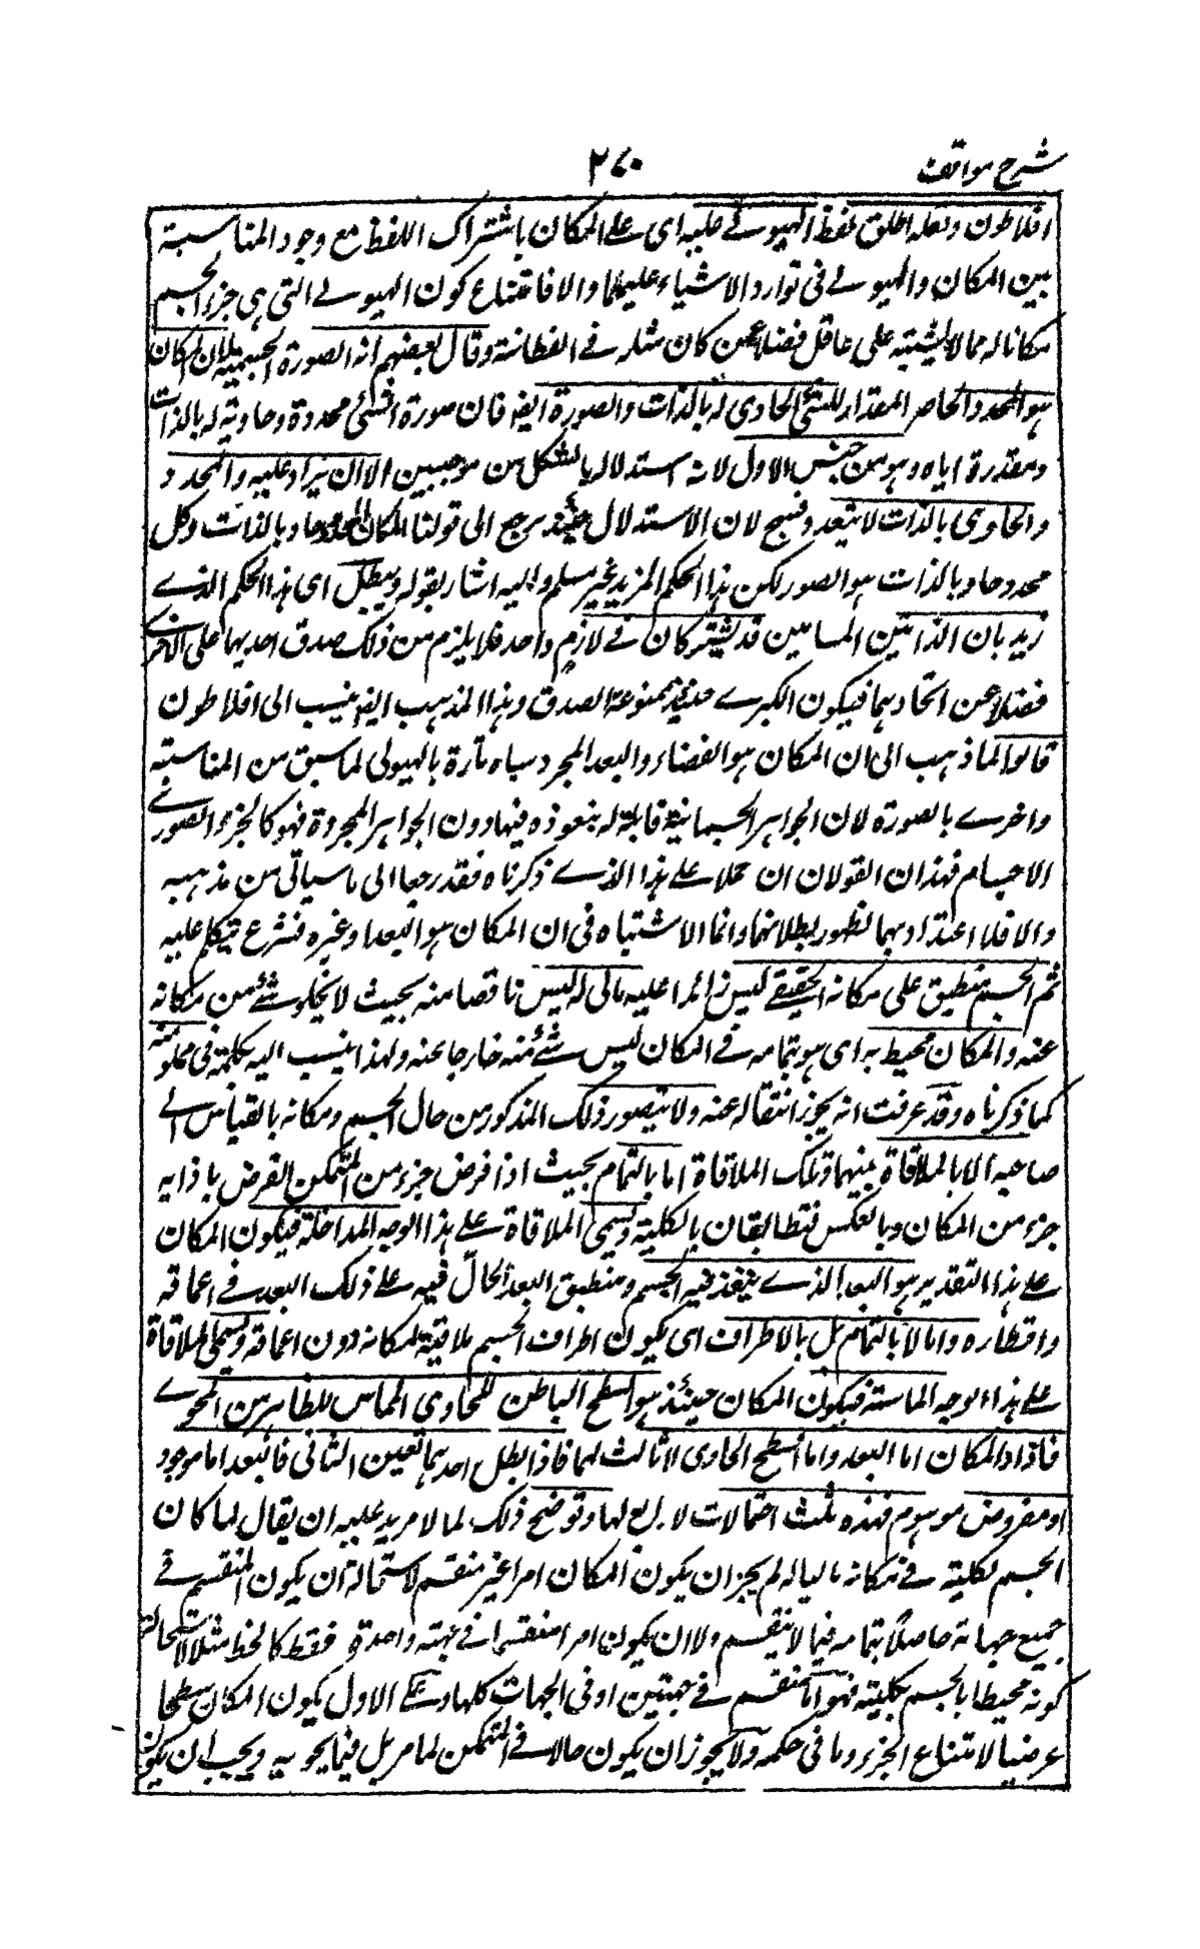 شرح مواقف
٢٧٠
افلاطون ولعله اطلق لفظ الهيولے عليه اى على المكان باشتراك اللفظ مع وجود المناسبة
بين المكان والهيولے فى توارد الاشياء عليهما والا فامتناع كون الهيولے التى هى جزء الجسم
مكانا له مما لا يشتبه على عاقل فضلا عمن كان مثله فے الفطانة وقال بعضهم انه الصورة الجسمية لان المكان
هو المحدد الحاصر المقدار للشئ الحاوى له بالذات والصورة ايضا فان صورة الشئ محددة وحاوية له بالذات
ومقدرة اياه وهو من جنس الاول لانه استدلال بالشكل من موجبتين الا ان يزاد عليه والمحدد
والحاوى بالذات لا يتعدد فيصح لان الاستدلال حينئذ يرجع الى قولنا المكان محدود حاو بالذات وكل
محدد حاو بالذات هو الصور لكن هذا الحكم المزيد غير مسلم واليه اشار بقوله ويبطل اى هذا الحكم الذے
زيد بان الذاتين المتباينين قد يشتركان فے لازم واحد فلا يلزم من ذلك صدق احديهما على الاخرے
فضلا عن اتحادهما فيكون الكبرے حينئذ ممنوعة الصدق وهذا المذهب ايضا ينسب الى افلاطون
قالوا لما ذهب الى ان المكان هو الفضاء والبعد المجرد سماه تارة بالهيولى لما سبق من المناسبة
واخرے بالصورة لان الجواهر الجسمانية قابلة له بنفوذه فيها دون الجواهر المجردة فهو كالجزء الصورے
الاجسام فهذان القولان ان حملا علے هذا الذے ذكرناه فقد رجعا الى ما سياتى من مذهبه
والا فلا اعتداد بهما لظهور بطلانهما وانما الاشتباه فى ان المكان هو البعد او غيره فشرع يتكلم عليه
ثم الجسم منطبق على مكانه الحقيقے ليس زائدا عليه مالى له ليس ناقصا منه بحيث لا يخلو شئ من مكانه
عنه والمكان محيط به اى هو بتمامه فے المكان ليس شئ منه خارجا عنه ولهذا ينسب اليه بكلمة فى مملو منه
كما ذكرناه وقد عرفت انه يجوز انتقاله عنه ولا يتصور ذلك المذكور من حال الجسم ومكانه بالقياس الے
صاحبه الا بالملاقاة بينهما وتلك الملاقاة اما بالتمام بحيث اذا فرض جزء من المتمكن الفرض بازائه
جزء من المكان وبالعكس فتطابقان بالكلية ويسمى الملاقاة علے هذا الوجه المداخلة فيكون المكان
علے هذا التقدير هو البعد الذے ينفذ فيه الجسم ومنطبق البعد الحال فيه علے ذلك البعد فے اعماقه
واقطاره واما لا بالتمام بل بالاطراف اى يكون اطراف الجسم ملاقية لمكانه دون اعماقه ويسمى الملاقاة
علے هذا الوجه المماسة فيكون المكان حينئذ هو السطح الباطن للحاوى المماس للظاهر من المحوے
فاذا المكان اما البعد واما السطح الحاوى لا ثالث لهما فاذا بطل احدهما تعين الثانى فالبعد اما موجود
او مفروض موهوم فهذه ثلث احتمالات لا رابع لها وتوضيح ذلك لما لا مريد عليه ان يقال لما كان
الجسم بكليته فے مكانه ماليا له لم يجز ان يكون المكان امرا غير منقسم لاستحالة ان يكون المنقسم فے
جميع جهاته حاصلا بتمامه فيما لا ينقسم ولا ان يكون امرا منقسما فے جهة واحدة فقط كالخط مثلا لاستحالة
كونه محيطا بالجسم بكليته فهو اما منقسم فے جهتين او فى الجهات كلها وعلے الاول يكون المكان سطحا
عرضيا لامتناع الجزء وما فى حكمه ولا يجوز ان يكون حالا فے المتمكن لما مر بل فيما يحويه ويجب ان يكون